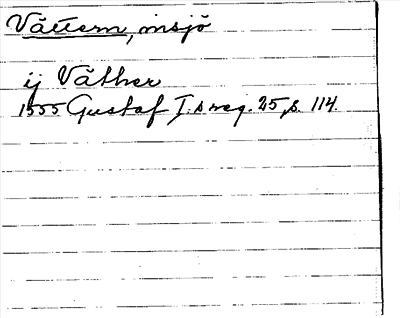 Vättern, insjö
ij Väther
1555 Gustaf I:s reg. 25, s. 114.